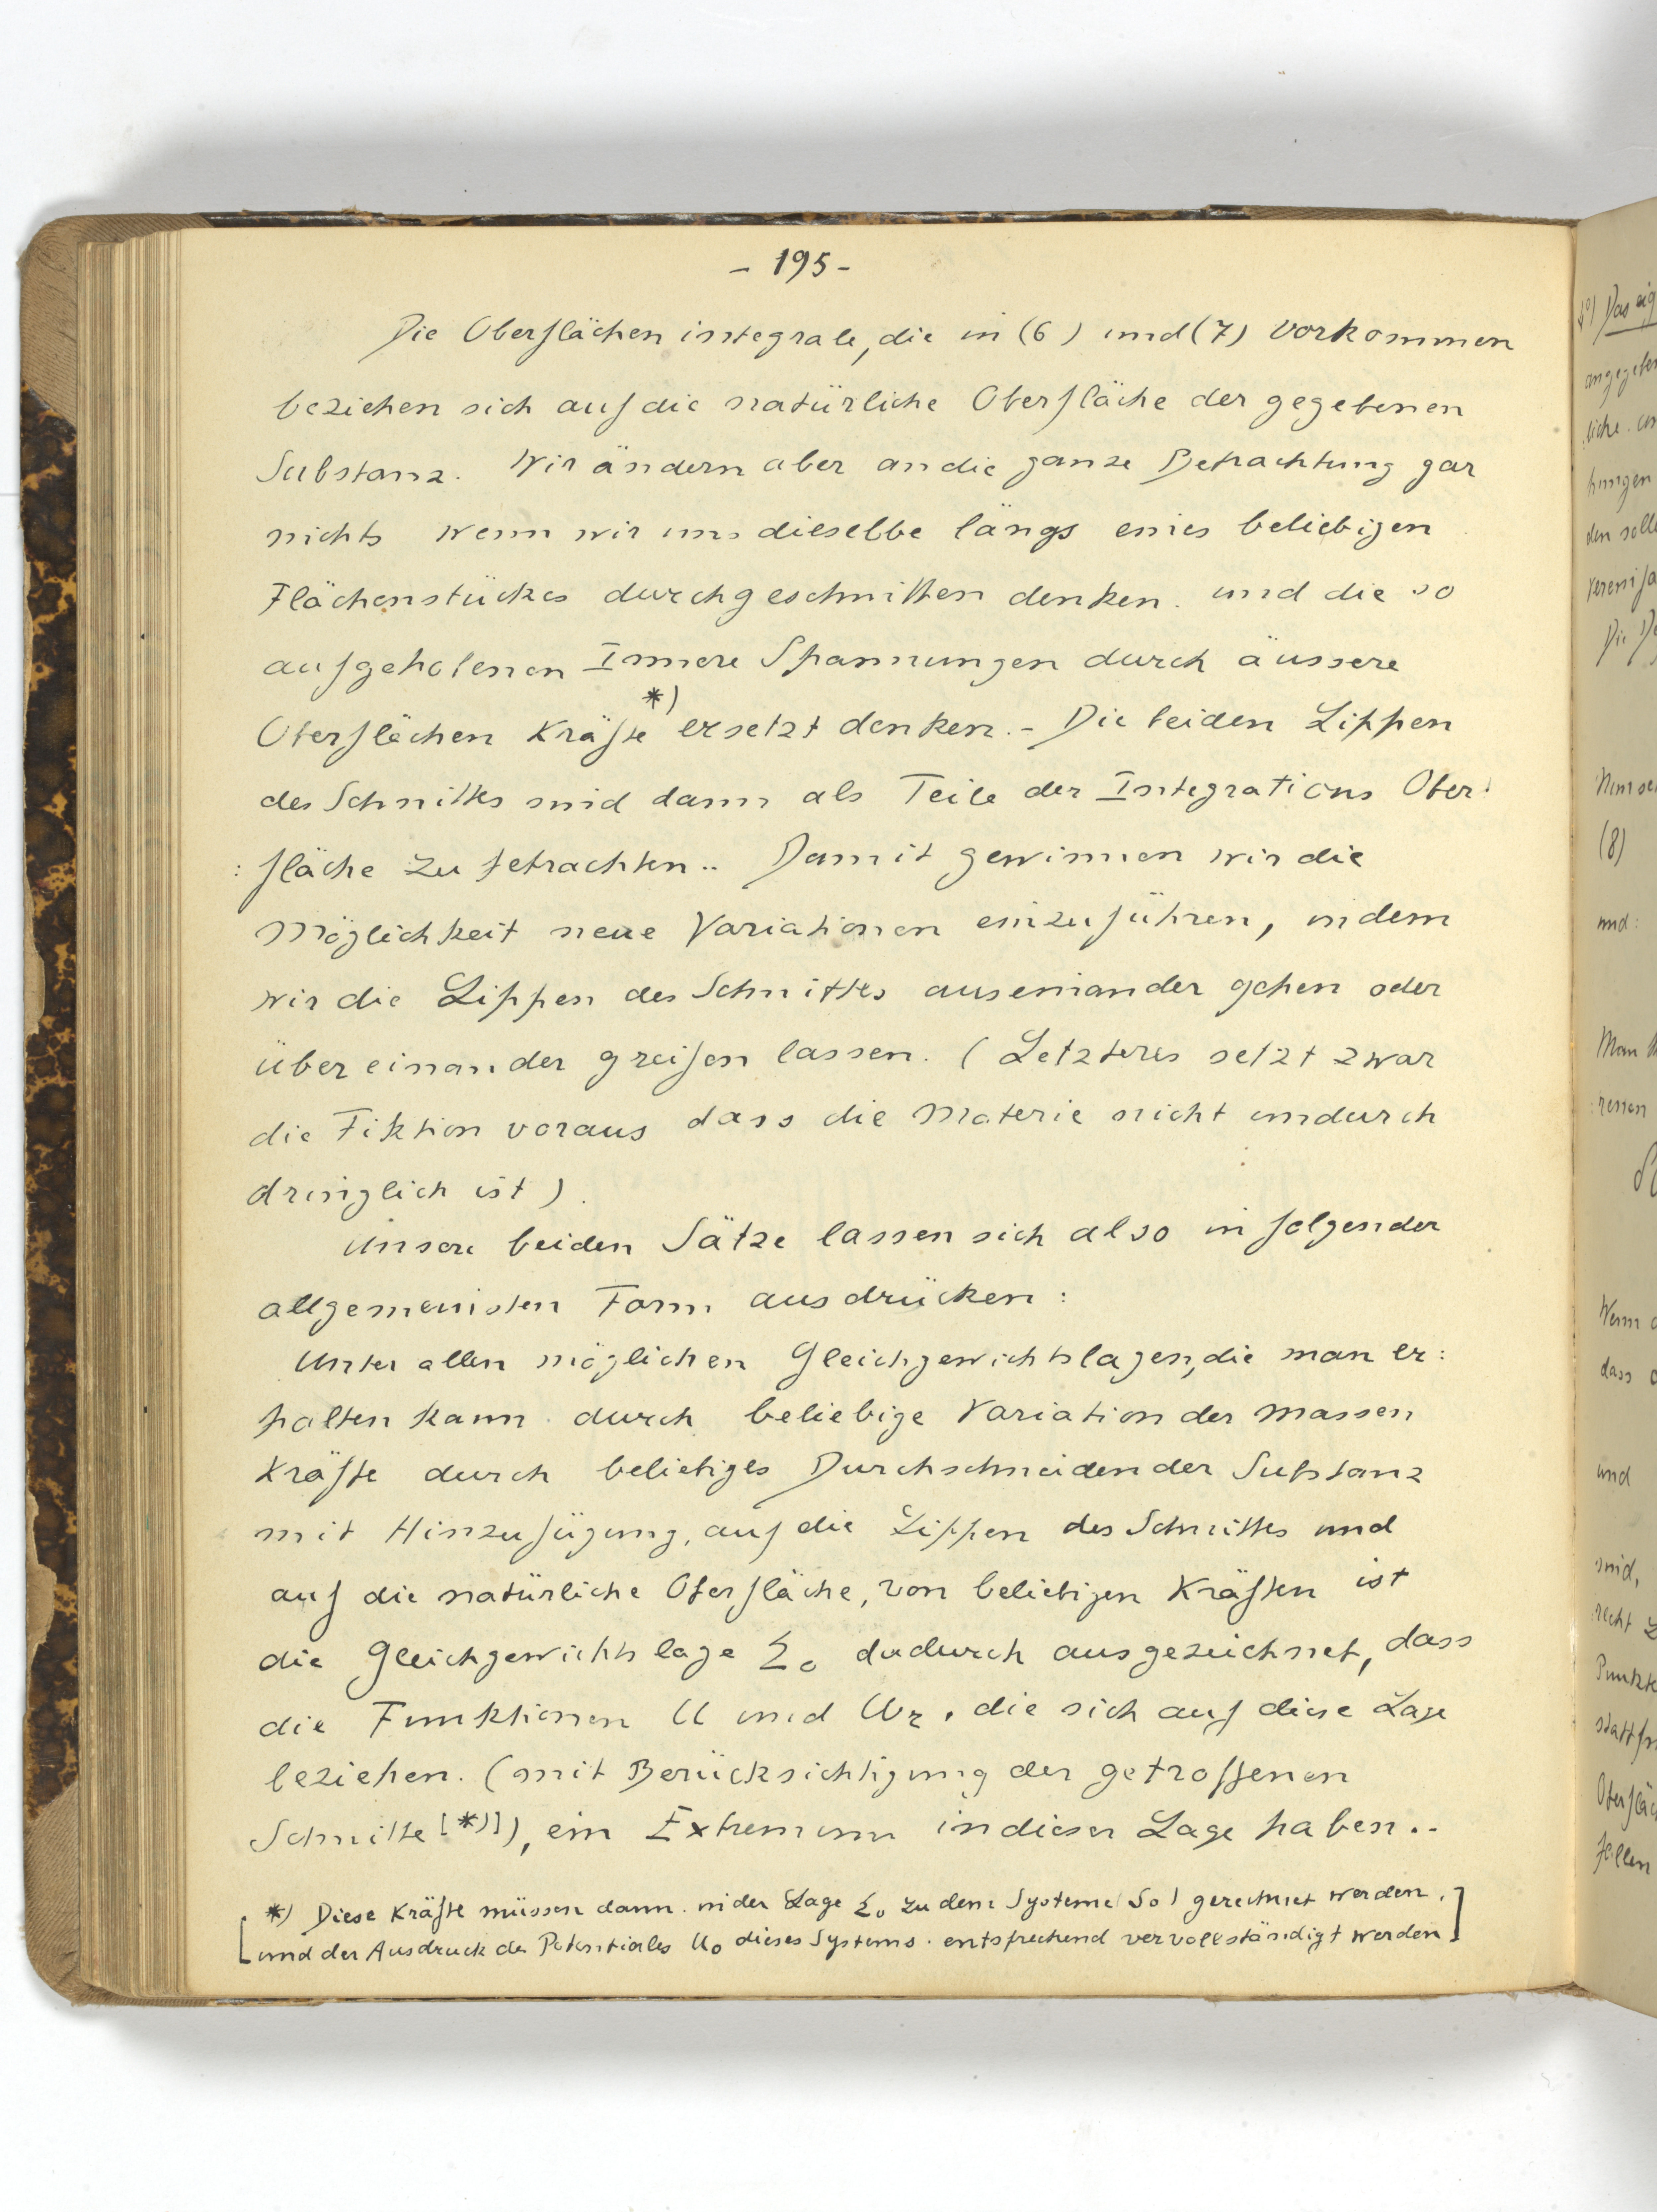 - 195 -
Die Oberflächenintegrale, die in (6) und (7) vorkommen
beziehen sich auf die natürliche Oberfläche der gegebenen
Substanz. Wir ändern aber an die ganze Betrachtung gar
nichts wenn wir uns dieselbe längs eines beliebigen
Flächenstückes durchgeschnitten denken. und die so
aufgehobenen Innere Spannungen durch äussere
Oberflächen Kräfte *) ersetzt denken. - Die beiden Lippen
des Schnittes sind dann als Teile der Integrations Ober:
: fläche zu betrachten.. Damit gewinnen wir die
Möglichkeit neue Variationen einzuführen, indem
wir die Lippen des Schnittes auseinander gehen oder
übereinander greifen lassen. (Letzteres setzt zwar
die Fiktion voraus dass die Materie nicht undurch
dringlich ist).
Unsere beiden Sätze lassen sich also in folgender
allgemeinsten Form ausdrücken:
Unter allen möglichen Gleichgewichtslagen, die man er:
halten kann durch beliebige Variation der Massen
Kräfte durch beliebiges Durchschneiden der Substanz
mit Hinzufügung, auf die Lippen des Schnittes und
auf die natürliche Oberfläche, von beliebigen Kräften ist
die Gleichgewichtslage Σ₀ dadurch ausgezeichnet, dass
die Funktionen U und U₂, die sich auf diese Lage
beziehen. (mit Berücksichtigung der getroffenen
Schnitte [*)]), ein Extremum in dieser Lage haben..
*) Diese Kräfte müssen dann in der Lage Σ₀ zu dem Systeme (S₀) gerechnet werden.
[und der Ausdruck des Potentiales U₀ dieses Systems. entsprechend vervollständigt werden]
angegeben
hungen
den solle
(8)
und:
Man
: renen
Wenn
dass
und
sind,
Punkte
fallen